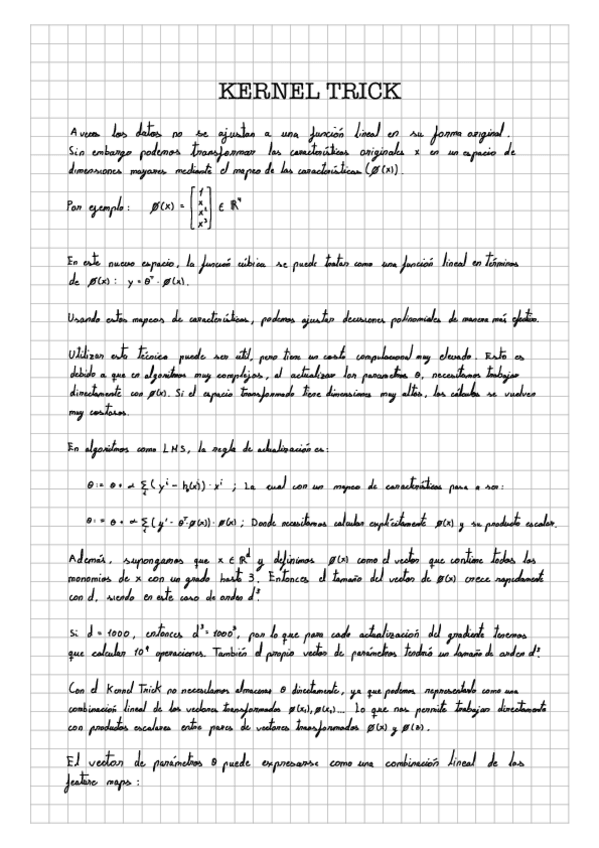 KERNEL TRICK
A veces los datos no se ajustan a una función lineal en su forma original.
Sin embargo podemos transformar las características originales x en un espacio de
dimensiones mayores mediante el mapeo de las características (Ø(x)).
Por ejemplo: Ø(x) = [1 x x² x³] ∈ ℝ⁴
En este nuevo espacio, la función cúbica se puede tratar como una función lineal en términos
de Ø(x): y = θᵀ · Ø(x).
Usando estos mapeos de características, podemos ajustar decisiones polinomiales de manera más efectiva.
Utilizar esta técnica puede ser útil, pero tiene un costo computacional muy elevado. Esto es
debido a que en algoritmos muy complejos, al actualizar los parametros θ, necesitamos trabajar
directamente con Ø(x). Si el espacio transformado tiene dimensiones muy altas, los cálculos se vuelven
muy costosos.
En algoritmos como LMS, la regla de actualización es:
θ := θ + α Σ (yⁱ - h(x)) · xⁱ ; La cual con un mapeo de características pasa a ser:
θ := θ + α Σ (yⁱ - θᵀ·Ø(x)) · Ø(x) ; Donde necesitamos calcular explícitamente Ø(x) y su producto escalar.
Además, supongamos que x ∈ ℝᵈ y definimos Ø(x) como el vector que contiene todos los
monomios de x con un grado hasta 3. Entonces el tamaño del vector de Ø(x) crece rapidamente
con d, siendo en este caso de orden d³.
Si d = 1000, entonces d³ = 1000³, por lo que para cada actualización del gradiente tenemos
que calcular 10⁹ operaciones. También el propio vector de parámetros tendrá un tamaño de orden d³.
Con el Kernel Trick no necesitamos almacenar θ directamente, ya que podemos representarlo como una
combinación lineal de los vectores transformados Ø(x₁), Ø(x₂)... Lo que nos permite trabajar directamente
con productos escalares entre pares de vectores transformados Ø(x) y Ø(z).
El vector de parámetros θ puede expresarse como una combinación lineal de los
feature maps: